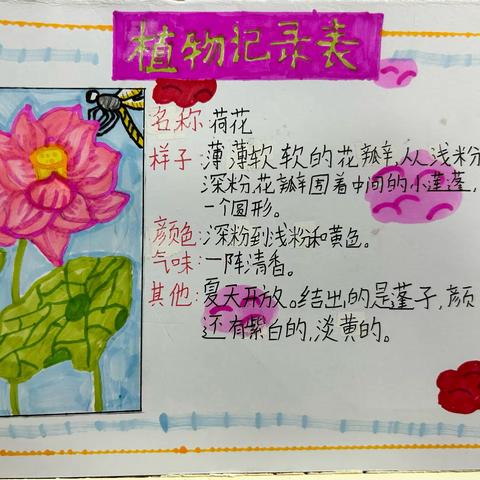 植物记录表
名称:荷花
样子:薄薄软软的花瓣,从浅粉
深粉,花瓣围着中间的小莲蓬,
一个圆形。
颜色:深粉到浅粉和黄色。
气味:一阵清香。
其他:夏天开放。结出的是莲子,颜
还有紫白的,淡黄的。